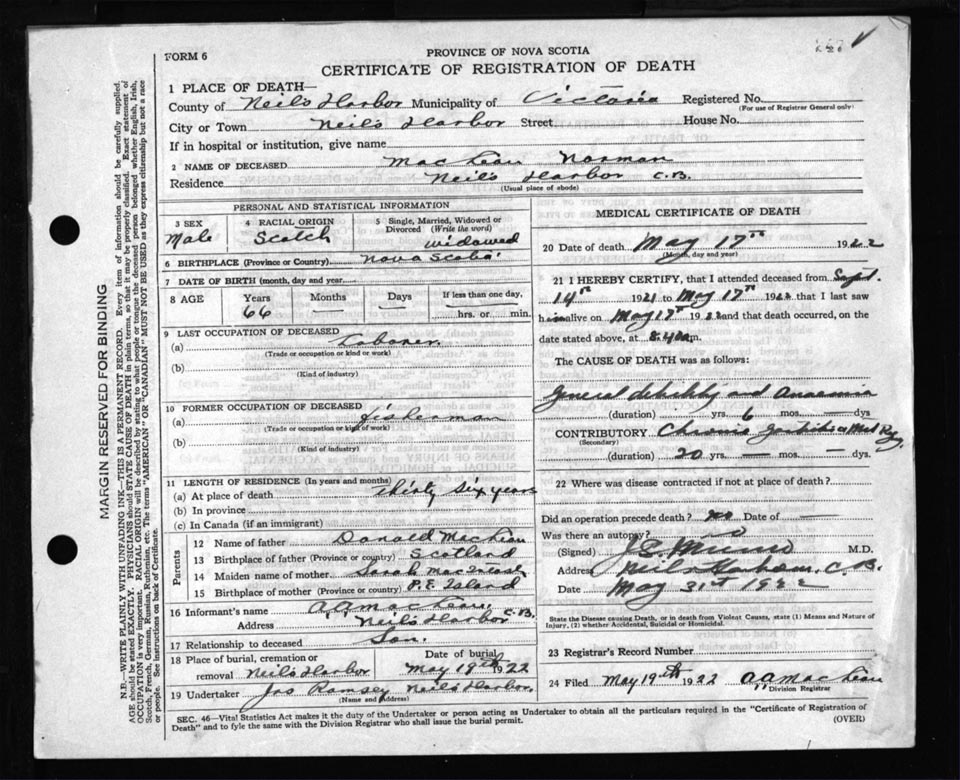 FORM 6
PROVINCE OF NOVA SCOTIA
CERTIFICATE OF REGISTRATION OF DEATH
1 PLACE OF DEATH—
County of Neils Harbor Municipality of Victoria Registered No.
(For use of Registrar General only)
City or Town Neils Harbor Street House No.
If in hospital or institution, give name
2 NAME OF DECEASED MacLean Norman
Residence Neils Harbor C.B.
(Usual place of abode)
PERSONAL AND STATISTICAL INFORMATION
3 SEX Male
4 RACIAL ORIGIN Scotch
5 Single, Married, Widowed or Divorced (Write the word) widowed
6 BIRTHPLACE (Province or Country) Nova Scotia
7 DATE OF BIRTH (month, day and year)
8 AGE Years 66 Months — Days — If less than one day, hrs. or min.
9 LAST OCCUPATION OF DECEASED
(a) Laborer.
(Trade or occupation or kind or work)
(b)
(Kind of industry)
10 FORMER OCCUPATION OF DECEASED
(a) fisherman
(Trade or occupation or kind of work)
(b)
(Kind of industry)
11 LENGTH OF RESIDENCE (In years and months)
(a) At place of death thirty six years
(b) In province
(c) In Canada (if an immigrant)
Parents
12 Name of father Donald McLean
13 Birthplace of father (Province or country) Scotland
14 Maiden name of mother Sarah MacIntosh
15 Birthplace of mother (Province or country) P.E. Island
16 Informant's name A A MacLean
Address Neils Harbor C.B.
17 Relationship to deceased Son.
18 Place of burial, cremation or removal Neils Harbor Date of burial May 19th 1922
19 Undertaker Jas Ramsey Neils Harbor.
(Name and Address)
MEDICAL CERTIFICATE OF DEATH
20 Date of death May 17th 1922
(Month, day and year)
21 I HEREBY CERTIFY, that I attended deceased from Sept.
14th 1921 to May 17th 1922 that I last saw
him alive on May 17th 1922 and that death occurred, on
date stated above, at m.
The CAUSE OF DEATH was as follows:
General debility and Anaemia
(duration) — yrs. 6 mos. — dys
CONTRIBUTORY Chronic
(Secondary)
(duration) 20 yrs. — mos. — dys.
22 Where was disease contracted if not at place of death?
Did an operation precede death? no Date of —
Was there an autopsy? no
(Signed) M.D.
Address Neils Harbour, C.B.
Date May 31st 1922
State the Disease causing Death, or in death from Violent Causes, state (1) Means and Nature of Injury, (2) whether Accidental, Suicidal or Homicidal.
23 Registrar's Record Number
24 Filed May 19th 1922 A A MacLean
Division Registrar
SEC. 46—Vital Statistics Act makes it the duty of the Undertaker or person acting as Undertaker to obtain all the particulars required in the "Certificate of Registration of
Death" and to fyle the same with the Division Registrar who shall issue the burial permit.
(OVER)
MARGIN RESERVED FOR BINDING
N.B.—WRITE PLAINLY WITH UNFADING INK—THIS IS A PERMANENT RECORD. Every item of information should be carefully supplied.
AGE should be stated EXACTLY. PHYSICIANS should STATE CAUSE OF DEATH in plain terms, so that it may be properly classified. Exact statement of
OCCUPATION is very important. RACIAL ORIGIN will be described by stating to what people or tongue the deceased person belonged whether English, Irish,
Scotch, French, German, Russian, Ruthenian, etc. The terms "AMERICAN" OR "CANADIAN" MUST NOT BE USED as they express citizenship but not a race
or people. See instructions on back of Certificate.